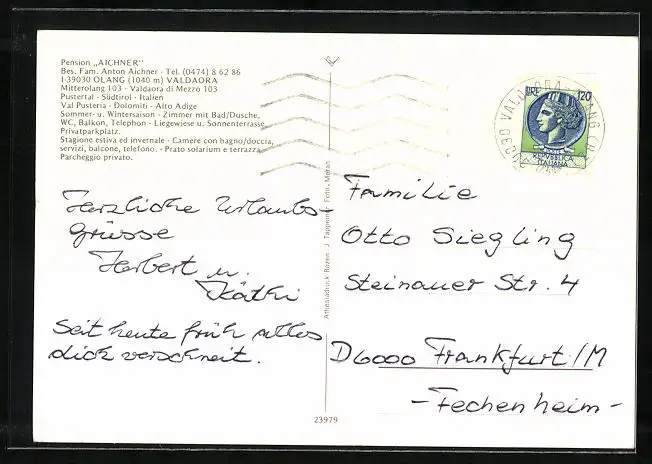 Pension „AICHNER"
Bes. Fam. Anton Aichner - Tel. (0474) 8 62 86
I-39030 OLANG (1040 m) VALDAORA
Mitterolang 103 - Valdaora di Mezzo 103
Pustertal - Südtirol - Italien
Val Pusteria - Dolomiti - Alto Adige
Sommer- u. Wintersaison - Zimmer mit Bad/Dusche,
WC, Balkon, Telephon - Liegewiese u. Sonnenterrasse,
Privatparkplatz.
Stagione estiva ed invernale - Camere con bagno/doccia,
servizi, balcone, telefono. - Prato solarium e terrazza
Parcheggio privato.
Herzliche Urlaubs-
grüsse
Herbert u.
Käthi
Seit heute früh alles
dick verschneit.
Athesiadruck Bozen J. Tappeiner Foto, Meran
23979
LIRE 120
REPVBBLICA
ITALIANA
39030 VALDAORA - OLANG
Familie
Otto Siegling
Steinauer Str. 4
D6000 Frankfurt/M
- Fechenheim -